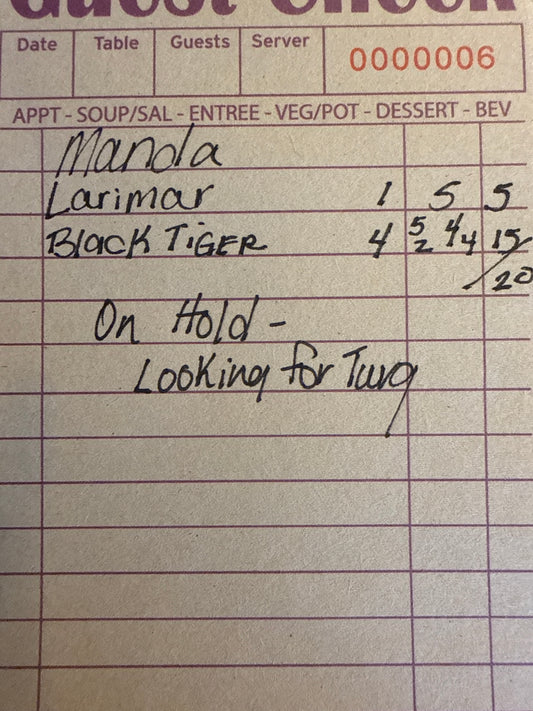 Guest Check
Date Table Guests Server 0000006
APPT - SOUP/SAL - ENTREE - VEG/POT - DESSERT - BEV
Manda
Larimar 1 5 5
Black TIGER 4 5 2 4/4 15
/20
On Hold -
Looking for Turq